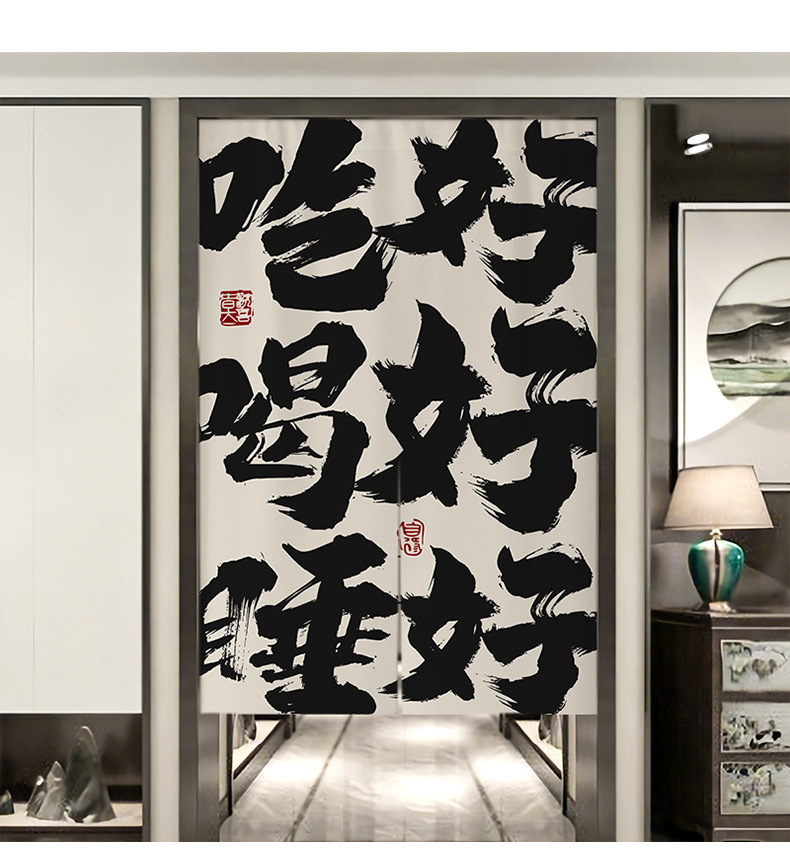 吃好
喝好
睡好